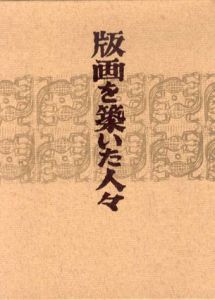 版画を築いた人々